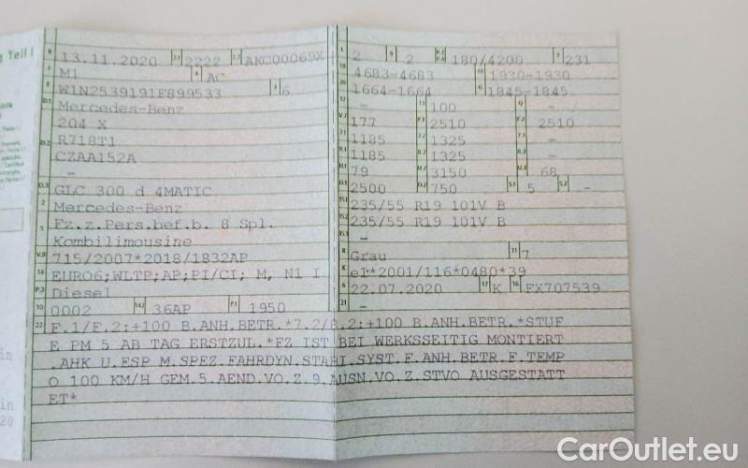 g Teil I
B 13.11.2020 2.1 2222 2.2 AKC00069X
J M1 4 AC
E W1N2539191F899533 3 6
D.1 Mercedes-Benz
204 X
D.2 R718T1
CZAA152A
-
D.3 GLC 300 d 4MATIC
2 Mercedes-Benz
5 Fz.z.Pers.bef.b. 8 Spl.
Kombilimousine
V.9 715/2007*2018/1832AP
14 EURO6;WLTP;AP;PI/CI; M, N1 I
P.3 Diesel
10 0002 14.1 36AP P.1 1950
L 2 9 2 P.2 P.4 180/4200 T 231
18 4683-4683 19 1930-1930
20 1664-1664 G 1845-1845
12 - 13 100 Q -
V.7 177 F.1 2510 F.2 2510
7.1 1185 7.2 1325 7.3 -
8.1 1185 8.2 1325 8.3 -
U.1 79 U.2 3150 U.3 68
O.1 2500 O.2 750 S.1 5 S.2 -
15.1 235/55 R19 101V B
15.2 235/55 R19 101V B
15.3 -
R Grau 11 7
K e1*2001/116*0480*39
6 22.07.2020 17 K 16 FX707539
21 -
22 F.1/F.2:+100 B.ANH.BETR.*7.2/8.2:+100 B.ANH.BETR.*STUF
E PM 5 AB TAG ERSTZUL.*FZ IST BEI WERKSSEITIG MONTIERT
.AHK U.ESP M.SPEZ.FAHRDYN.STABI.SYST.F.ANH.BETR.F.TEMP
O 100 KM/H GEM.5.AEND.VO.Z.9.AUSN.VO.Z.STVO AUSGESTATT
ET*
in
in
20
CarOutlet.eu